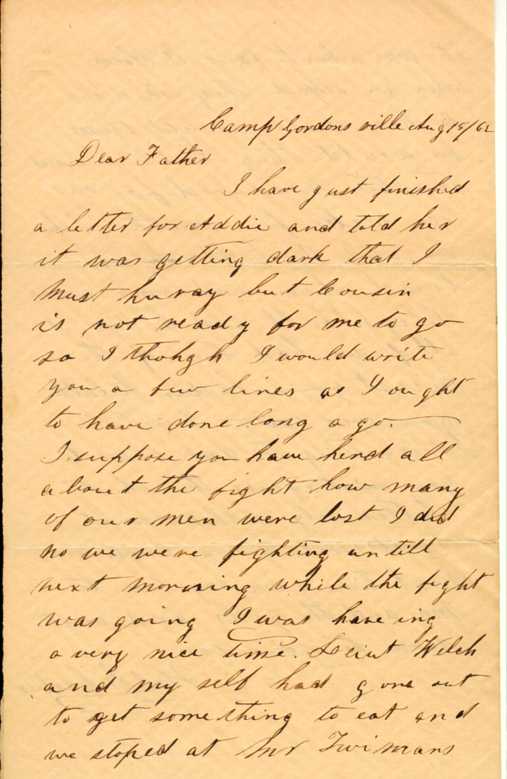 Camp Gordons ville Aug 18/62
Dear Father
I have just finished
a letter for Addie and told her
it was getting dark that I
must huray but Cousin
is not ready for me to go
so I thohgh I would write
you a few lines as I ought
to have done long a go.
I suppose you have herd all
about the fight how many
of our men were lost I did
no we were fighting untill
next morning while the fight
was going I was have ing
a very nice time. Leiut Welch
and my self had gone out
to get some thing to eat and
we stoped at Mr Twimans